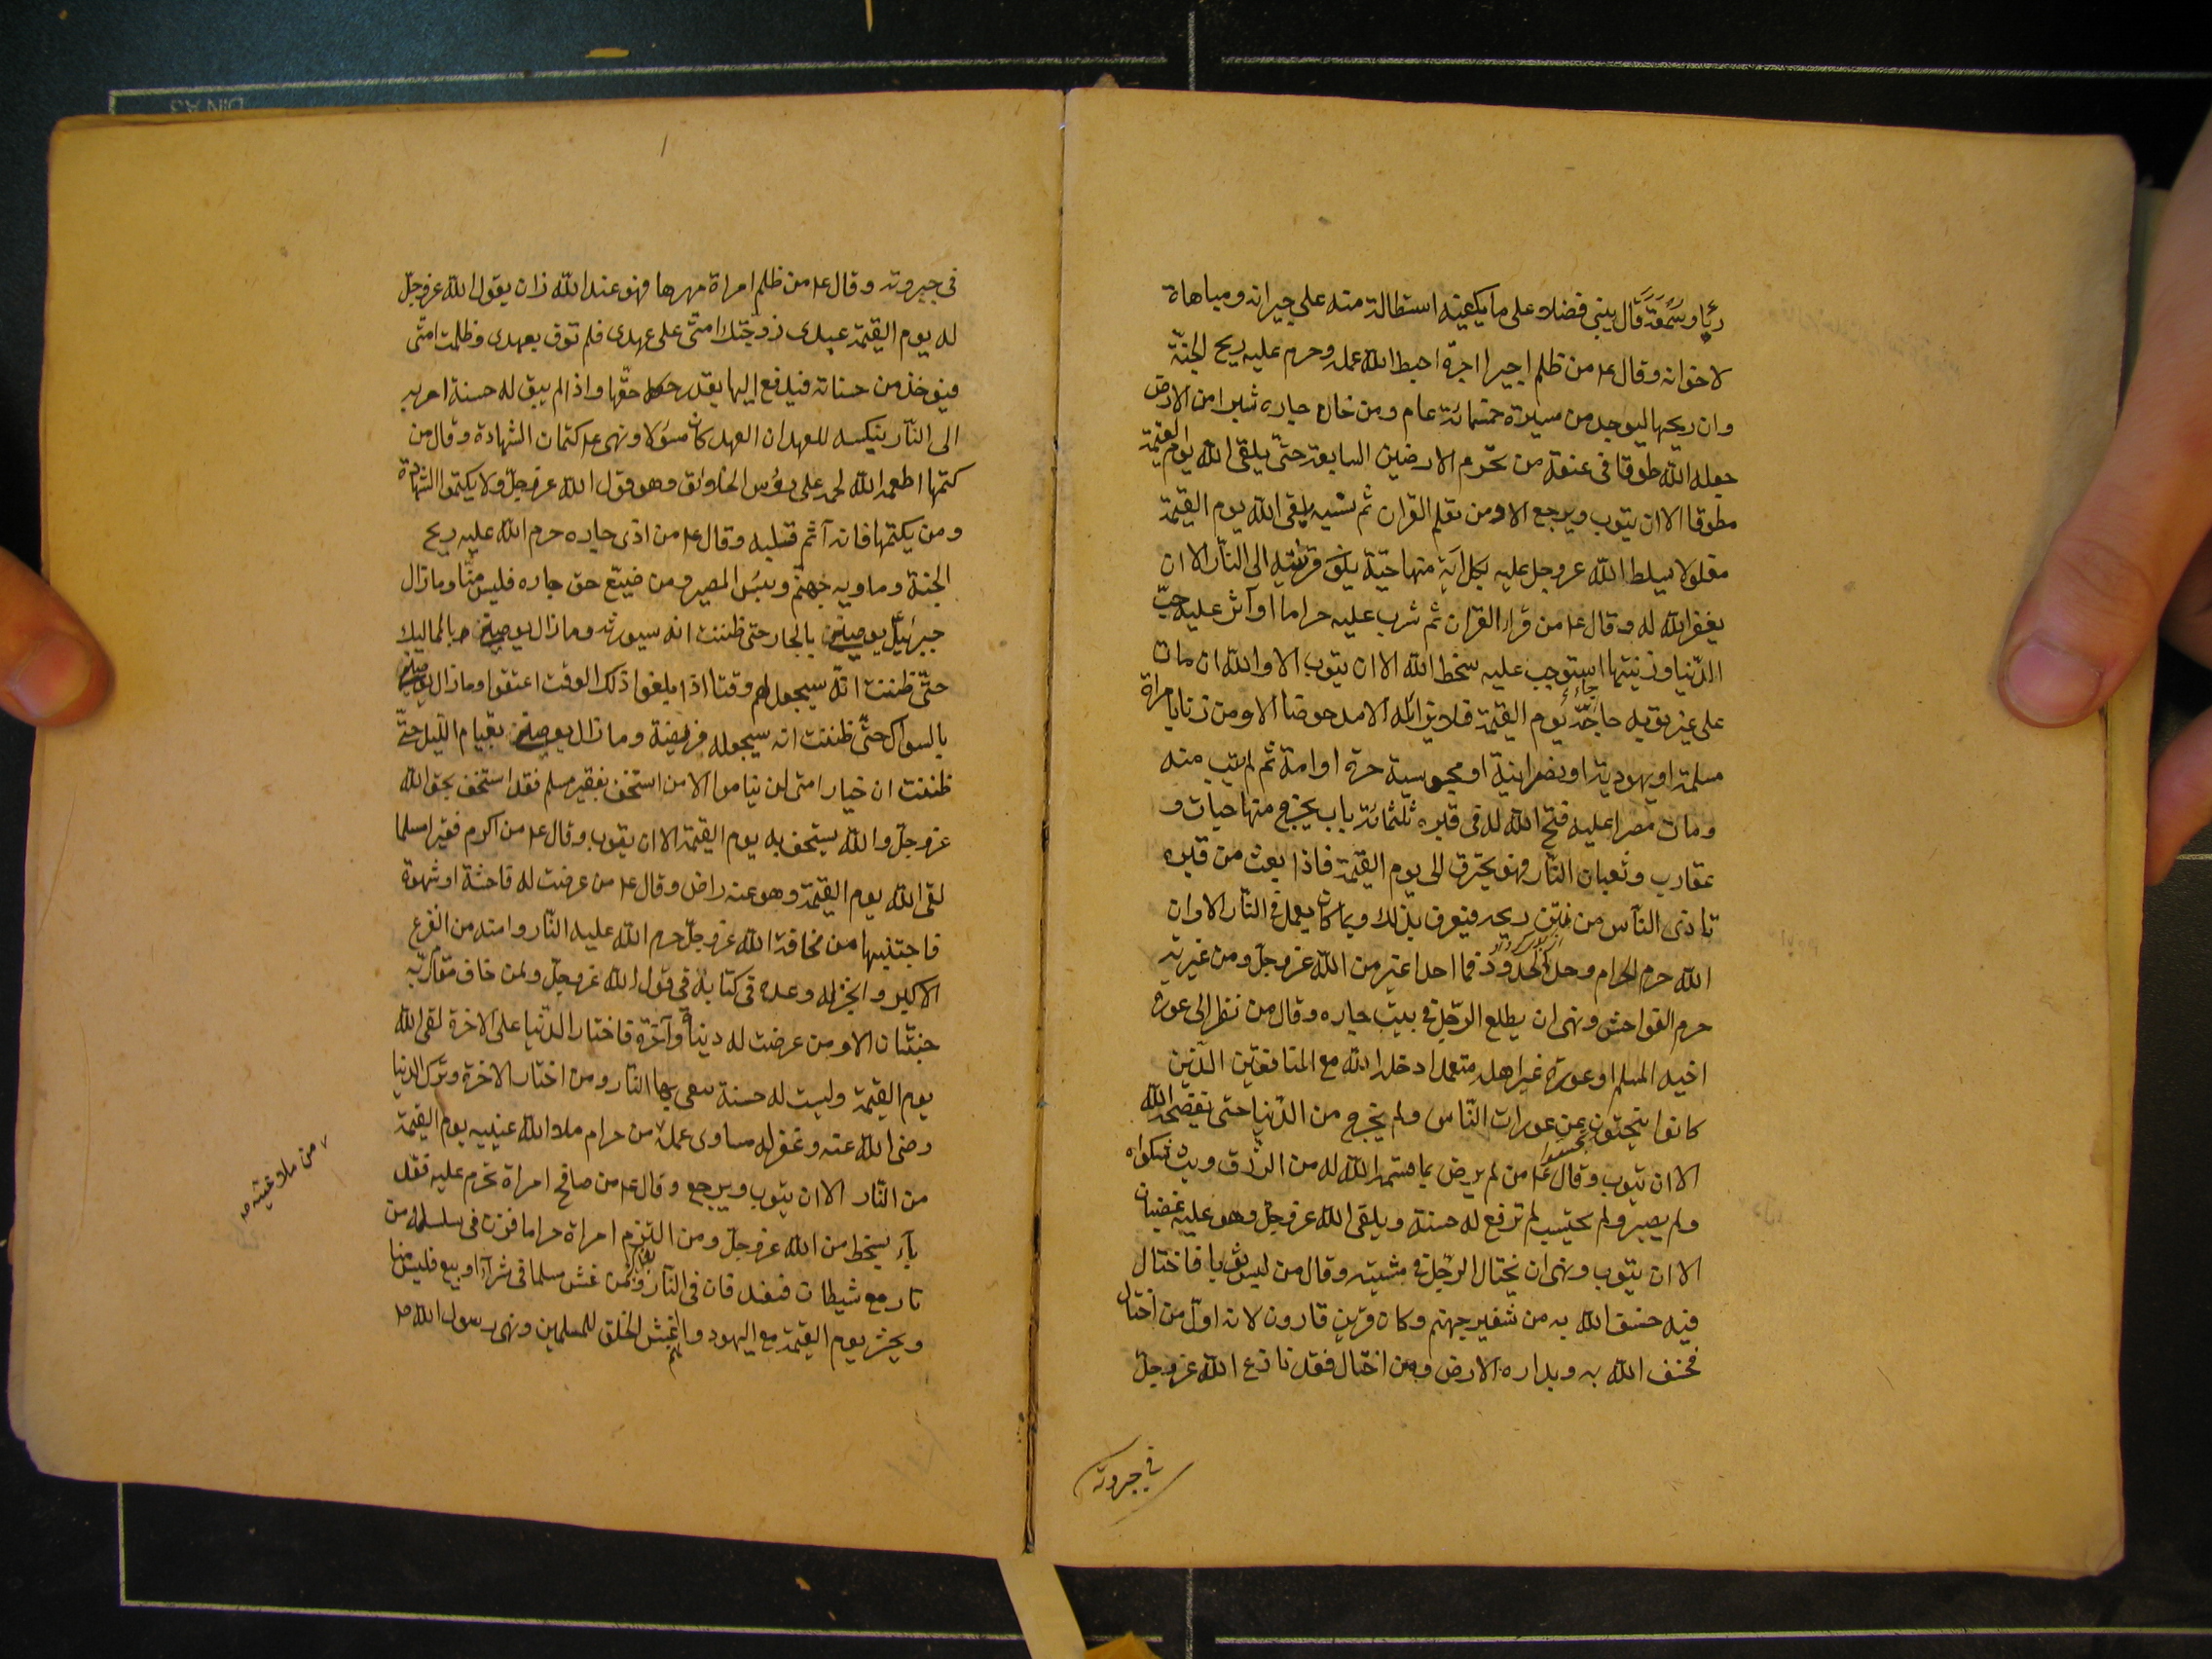 رئاو سمعة قال يبنى فضلا على ما يكفيه استطالة منه على جيرانه ومباهاة
لاخوانه وقال ع من ظلم اجيرا اجره احبط الله عمله وحرم عليه ريح الجنّة
وان ريحها ليوجد من مسيرة خمسمائة عام ومن خان جاره شبرا من الارض
جعله الله طوقا فى عنقه من تخوم الارضين السابعة حتّى يلقى الله يوم القيمة
مطوقا الا ان يتوب ويرجع الا ومن تعلم القران ثم نسيه يلقى الله يوم القيمة
مغلولا يسلط الله عز وجل عليه بكل اية منها حيّة يكون قرينته الى النّار الا ان
يغفر الله له وقال ع من قرأ القران ثم شرب عليه حراما او آثر عليه حبّ
الدّنيا وزينتها استوجب عليه سخط الله الا ان يتوب الا والله ان مات
على غير توبه حاجّه يوم القيمة فلا يزايله الا مدحوضا الا ومن زنا بامراة
مسلمة او يهودية او نصرانية او مجوسية حرة او امة ثم لم يتب منه
ومات مصرا عليه فتح الله له فى قبره ثلثمائة باب يخرج منها حيات و
عقارب وثعبان النّار فهو يحترق الى يوم القيمة فاذا بعث من قبره
تاذى النّاس من نتن ريحه فيعرف بذلك وبما كان يعمل فى النّار الا وان
الله حرم الحرام وحد الحدود فما احد اغير من الله عز وجلّ ومن غيرته
حرم الفواحش ونهى ان يطلع الرّجل فى بيت جاره وقال من نظر الى عورة
اخيه المسلم او عورة غير اهله متعمدا دخله الله مع المنافقين الّذين
كانوا يبحثون عن عورات النّاس ولم يخرج من الدّنيا حتى يفضحه الله
الا ان يتوب وقال ع من لم يرض بما قسمه الله له من الرّزق وبث شكواه
ولم يصبر ولم يحتسب لم ترفع له حسنة ويلقى الله عز وجلّ وهو عليه غضبان
الا ان يتوب ونهى ان يختال الرّجل فى مشيته وقال من لبس ثوبا فاختال
فيه خسف الله به من شفير جهنم وكان قرين قارون لانه اوّل من اختال
فخسف الله به وبداره الارض ومن اختال فقد نازع الله عز وجلّ
فى جبروته
فى جبروته وقال ع من ظلم امراة مهرها فهو عند الله زان يقول الله عز وجلّ
له يوم القيمة عبدى زوجتك امتى على عهدى فلم توف بعهدى وظلمت امتى
فيؤخذ من حسناته فيدفع اليها بقدر حقّها واذا لم يبق له حسنة امر به
الى النّار بنكسه للعهد ان العهد كان مسؤلا ونهى ع كتمان الشهادة وقال من
كتمها اطعمه الله لحمه على رؤس الخلائق وهو قول الله عز وجلّ ولا يكتموا الشهادة
ومن يكتمها فانه آثم قلبه وقال ع من اذى جاره حرم الله عليه ريح
الجنة وماويه جهنم وبئس المصير ومن ضيّع حق جاره فليس منّا وما زال
جبرئيل يوصينى بالجار حتى ظننت انه سيورثه وما زال يوصينى بالمماليك
حتّى ظننت انّه سيجعل لهم وقتا اذا بلغوا ذلك الوقت اعتقوا وما زال يوصينى
بالسواك حتّى ظننت انه سيجعله فريضة وما زال يوصينى بقيام اللّيل حتّى
ظننت ان خيار امتى لن يناموا الا من استخف بفقير مسلم فقد استخف بحق الله
عز وجلّ والله يستخف به يوم القيمة الا ان يتوب وقال ع من اكرم فقيرا مسلما
لقى الله يوم القيمة وهو عنه راض وقال ع من عرضت له فاحشة او شهوة
فاجتنبها من مخافة الله عز وجلّ حرم الله عليه النّار وامنه من الفزع
الاكبر وانجز له وعده فى كتابه فى قول الله عز وجلّ ولمن خاف مقام ربّه
جنّتان الا ومن عرضت له دنيا وآخرة فاختار الدّنيا على الاخرة لقى الله
يوم القيمة وليست له حسنة يتقى بها النّار ومن اختار الاخرة وترك الدنيا
رضى الله عنه وغفر له مساوى عمله من حرام ملا الله عينيه يوم القيمة
من النّار الا ان يتوب ويرجع وقال ع من صافح امراة تحرم عليه فقد
باء بسخط من الله عز وجلّ ومن التزم امراة حراما قرن فى سلسلة من
نار مع شيطان فيقذفان فى النّار ومن غش مسلما فى شراء او بيع فليس منا
ويحشر يوم القيمة مع اليهود لانهم اغش الخلق للمسلمين ونهى رسول الله ص
من ملا عينه ص